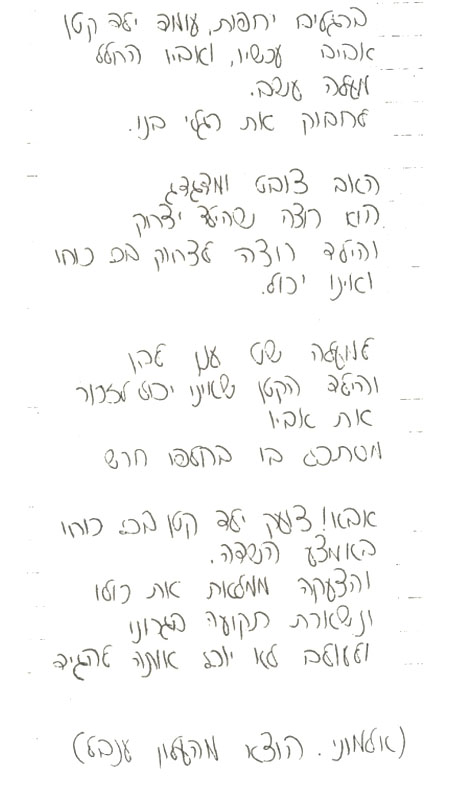 ברגליים יחפות, עומד ילד קטן
אביב עכשיו, ואביו החלל
מעלה עשב.
לחבוק את רגלי בנו.
האב צובט ומדגדג
הוא רוצה שהילד יצחק
והילד רוצה לצחוק בכל כוחו
ואינו יכול.
למעלה שט ענן לבן
והילד הקטן שאיני יכול לזכור
את אביו
מסתכל בו בחלפו חרש
אבא! צועק ילד קטן בכל כוחו
באמצע השדה.
והצעקה ממלאת את כולו
ונשארת תקועה בגרונו
ולעולם לא יוכל אותה להגיד
(אלמוני. הוצא מהעלון ענבל)